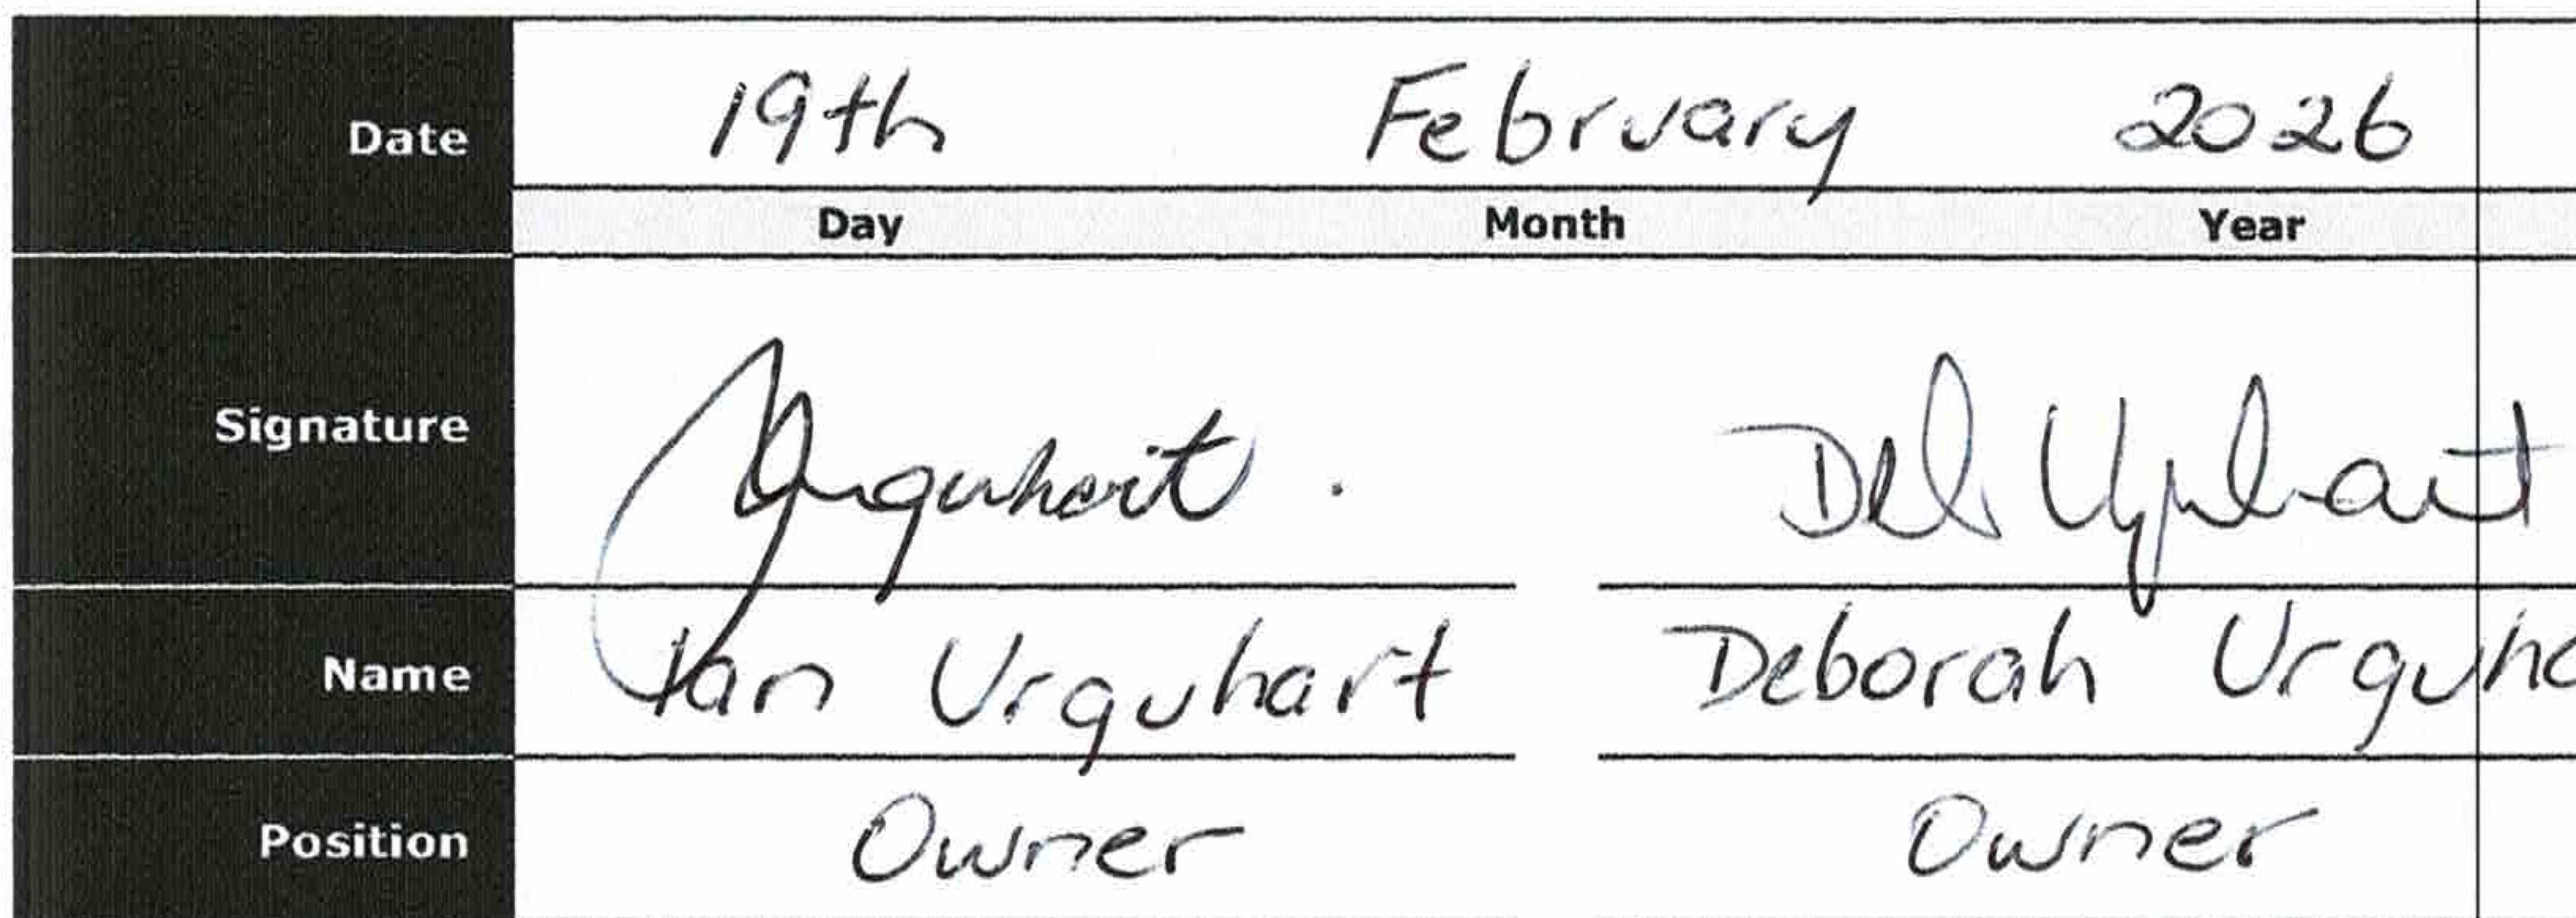 Date 19th February 2026
Day Month Year
Signature Urquhart. Deb Urquhart
Name Ian Urquhart Deborah Urquha
Position Owner Owner